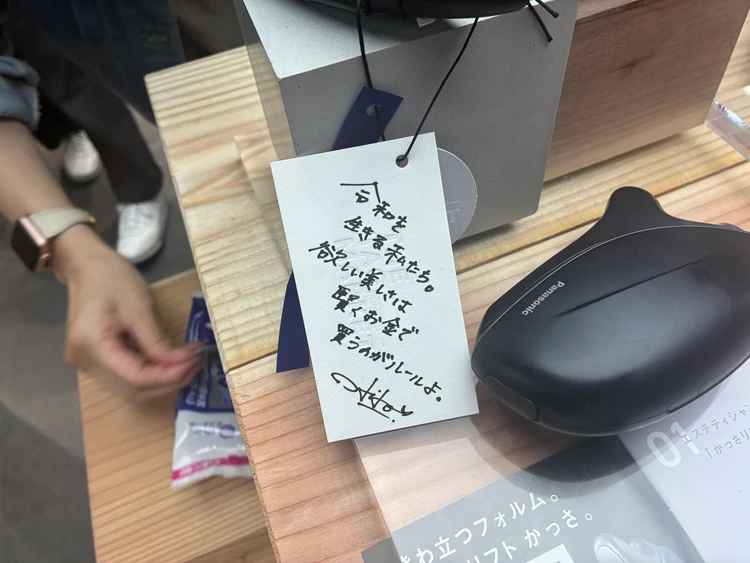 令和を
生きる私たち。
欲しい美しさは
賢くお金で
買うのがルールよ。
Panasonic
01
エステティシャン
「かっさリ
際立つフォルム。
リフト かっさ。